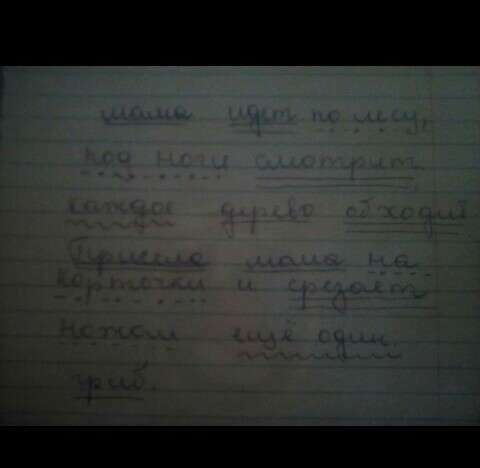 мама идёт по лесу,
под ноги смотрит
каждое дерево обходит
Присела мама на
корточки и срезает
ножом ещё один.
гриб.